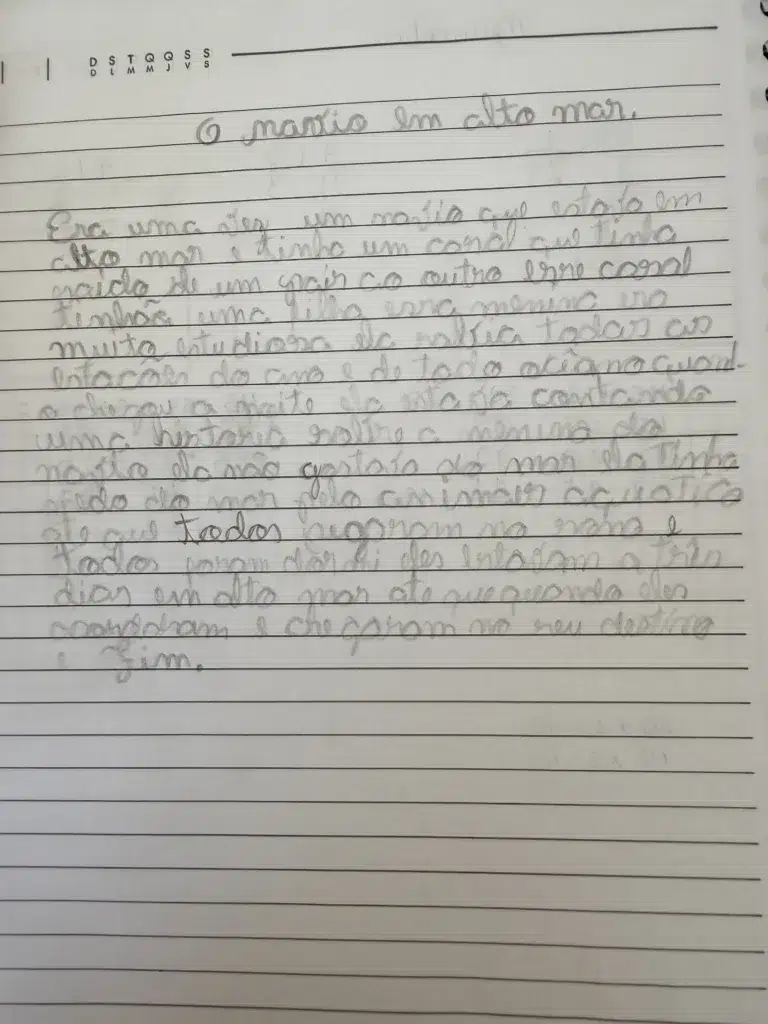 D S T Q Q S S
D L M M J V S
O navio em alto mar.
Era uma vez um navio que estava em
alto mar e tinha um casal que tinha
saido de um pais ao outro esse casal
tinhão uma filha essa menina era
muito estudiosa ela sabia todas as
estações do ano e de todo oceano quand-
o chegou a noite ela estava contando
uma historia sobre a menina do
navio ela não gostava do mar ela tinha
medo do mar pelo animais aquatico
ate que todos pegaram no sono e
todos foram dormi eles estavam a três
dias em alto mar ate que quando eles
acordaram e chegaram no seu destino
e Fim.